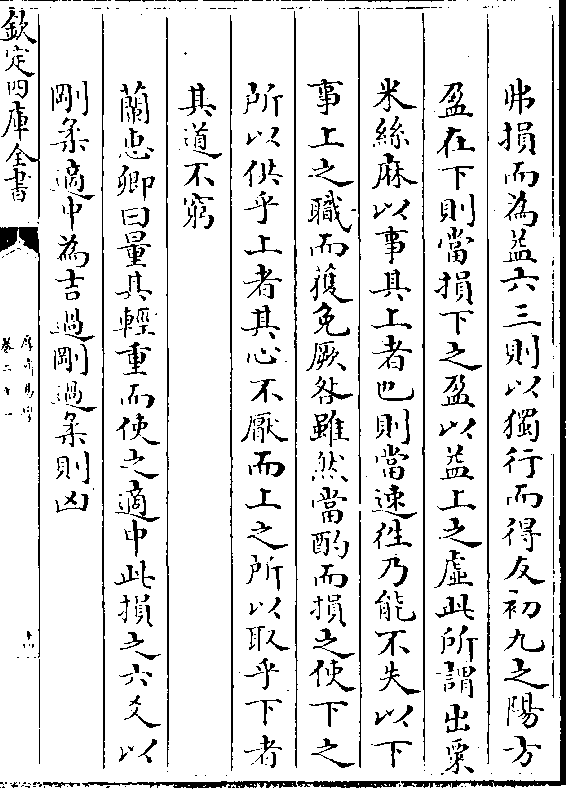 弗損而為益六三則以獨行而得友初九之陽方
盈在下則當損下之盈以益上之虛此所謂出粟
米絲麻以事其上者也則當速徃乃能不失以下
事上之職而獲免厥咎雖然當酌而損之使下之
所以供乎上者其心不厭而上之所以取乎下者
其道不窮
蘭忠卿曰量其輕重而使之適中此損之六爻以
剛柔適中為吉過剛過柔則凶
欽定四庫全書
厚齋易學
卷二十一
十四